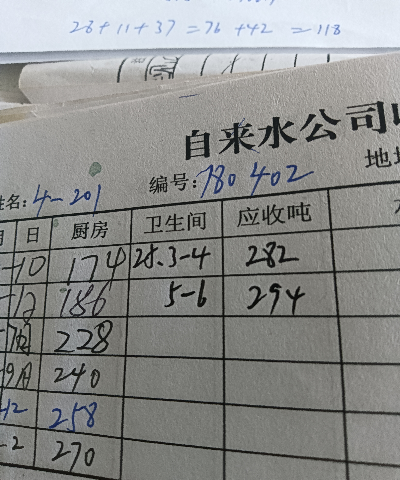 28+11+37=76+42=118
自来水公司
姓名:4-201 编号:780402 地
月 日 厨房 卫生间 应收吨
-10 174 25.3-4 282
186 5-6 294
228
9月 240
12 258
-2 270